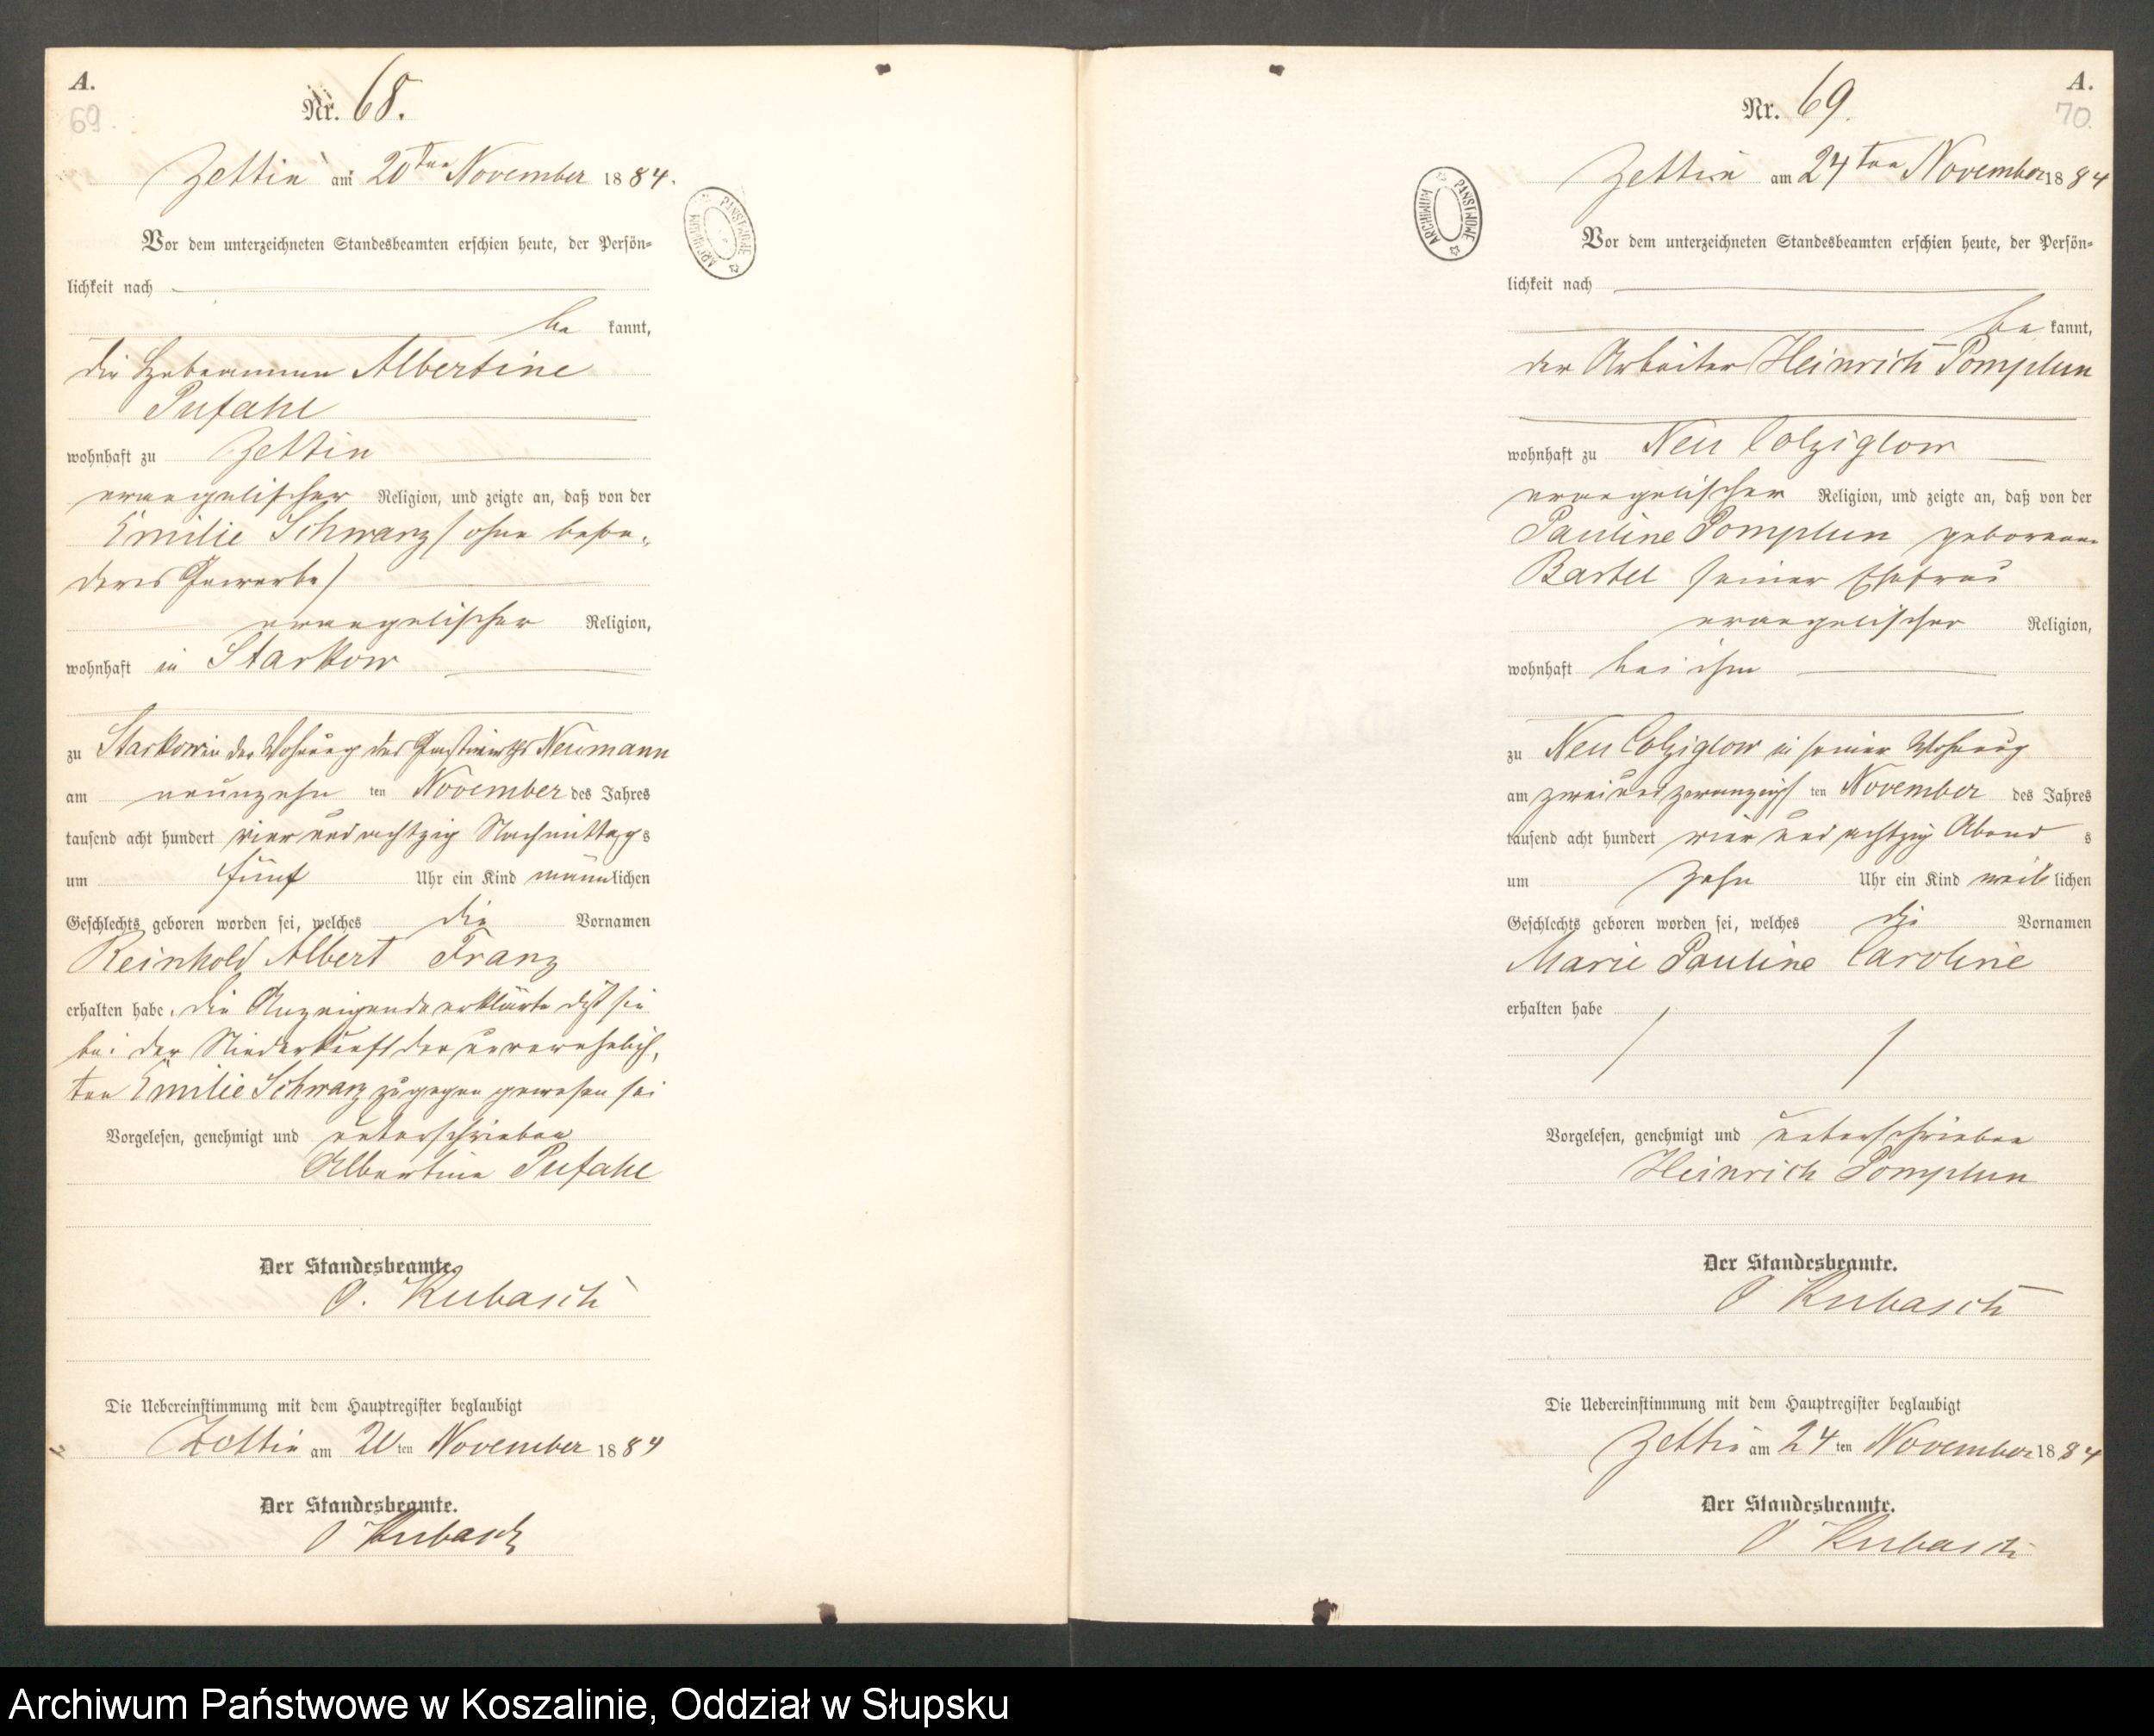 A.
69.
Nr. 68.
Zettin am 20ten November 1884.
Vor dem unterzeichneten Standesbeamten erschien heute, der Persön-
lichkeit nach
be kannt,
die Hebeamme Albertine
Pufahl
wohnhaft zu Zettin
evangelischer Religion, und zeigte an, daß von der
Emilie Schwarz (ohne beson-
deres Gewerbe)
evangelischer Religion,
wohnhaft in Starkow
zu Starkow in der Wohnung des Gastwirths Neumann
am neunzehn ten November des Jahres
tausend acht hundert vier und achtzig Nachmittags
um fünf Uhr ein Kind männlichen
Geschlechts geboren worden sei, welches die Vornamen
Reinhold Albert Franz
erhalten habe. Die Anzeigende erklärte daß sie
bei der Niederkunft der unverehelich-
ten Emilie Schwarz zugegen gewesen sei
Vorgelesen, genehmigt und unterschrieben
Albertine Pufahl
Der Standesbeamte.
O. Kubasch
Die Uebereinstimmung mit dem Hauptregister beglaubigt
Zettin am 20ten November 1884
Der Standesbeamte.
O Kubasch
A.
70.
Nr. 69.
Zettin am 24ten November 1884
ARCHIWUM PAŃSTWOWE
Vor dem unterzeichneten Standesbeamten erschien heute, der Persön-
lichkeit nach
be kannt,
der Arbeiter Heinrich Pomplun
wohnhaft zu Neu Colziglow
evangelischer Religion, und zeigte an, daß von der
Pauline Pomplun geborenen
Bartel seiner Ehefrau
evangelischer Religion,
wohnhaft bei ihm
zu Neu Colziglow in seiner Wohnung
am zwei und zwanzigs ten November des Jahres
tausend acht hundert vier und achtzig Abend s
um zehn Uhr ein Kind weib lichen
Geschlechts geboren worden sei, welches die Vornamen
Marie Pauline Caroline
erhalten habe
Vorgelesen, genehmigt und unterschrieben
Heinrich Pomplun
Der Standesbeamte.
O Kubasch
Die Uebereinstimmung mit dem Hauptregister beglaubigt
Zettin am 24 ten November 1884
Der Standesbeamte.
O Kubasch
Archiwum Państwowe w Koszalinie, Oddział w Słupsku